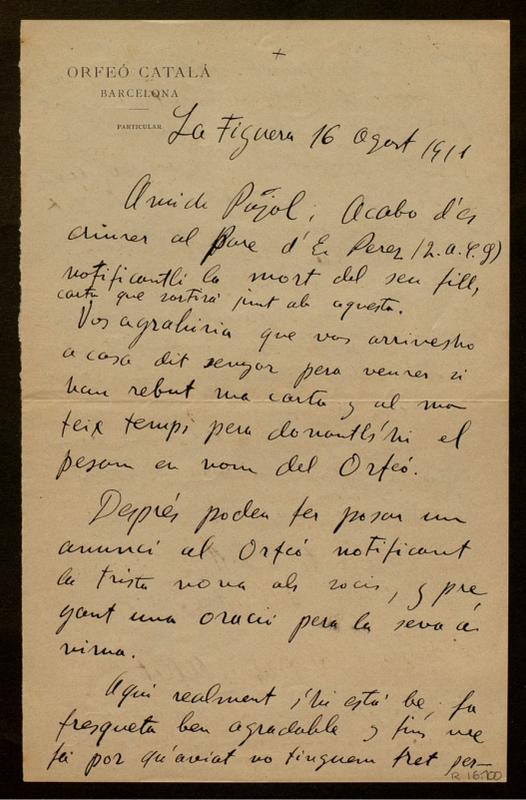 ORFEÓ CATALÁ
BARCELONA
PARTICULAR
La Figuera 16 Agost 1911
Amich Pujol; Acabo d'es
criurer al Pare d'E. Perez (Q.a.C.S)
notificantli la mort del seu fill,
carta que sortirá junt ab aquesta.
Vos agrahiria que vos arrivesho
a casa dit senyor pera veurer si
han rebut ma carta y al ma
teix temps pera donantlshi el
pesam en nom del Orfeó.
Després poden fer posar un
anunci al Orfeó notificant
la trista nova als socis, y pre
gant una oració pera la seva á
nima.
Aquí realment s'hi está be, fa
fresqueta ben agradable y fins me
fa por qu'aviat no tinguem fret per
R. 16.100